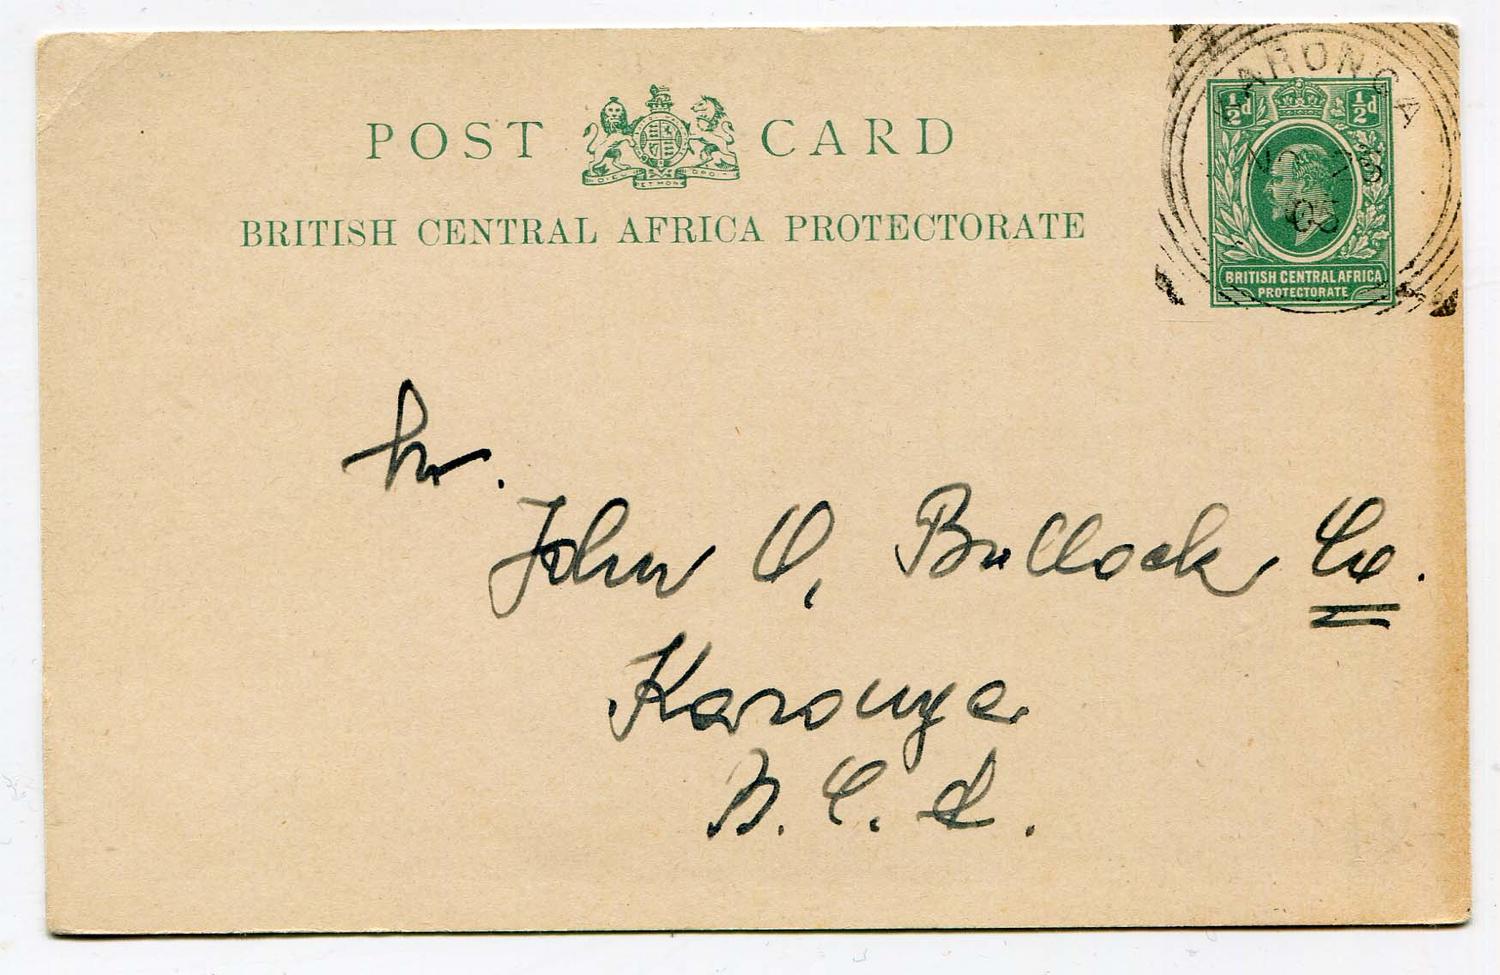 POST CARD
BRITISH CENTRAL AFRICA PROTECTORATE
½d ½d
BRITISH CENTRAL AFRICA
PROTECTORATE
KARONGA
NO
Mr.
John O, Bullock Co.
Karonga
B. C. A.